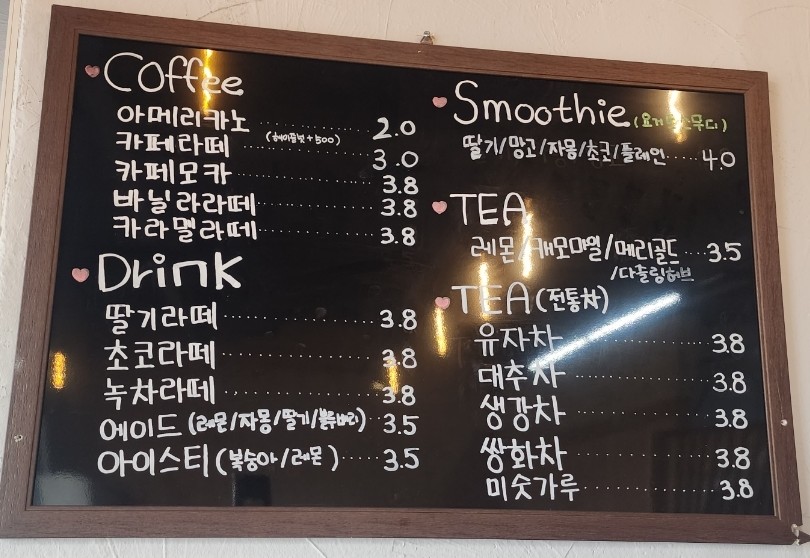 Coffee
아메리카노 2.0
카페라떼 (헤이즐넛+500) 3.0
카페모카 3.8
바닐라라떼 3.8
카라멜라떼 3.8
Drink
딸기라떼 3.8
초코라떼 3.8
녹차라떼 3.8
에이드 (레몬/자몽/딸기/블루베리) 3.5
아이스티 (복숭아/레몬) 3.5
Smoothie (요거트스무디)
딸기/망고/자몽/초코/플레인 4.0
TEA
레몬/캐모마일/메리골드 3.5
/다즐링허브
TEA (전통차)
유자차 3.8
대추차 3.8
생강차 3.8
쌍화차 3.8
미숫가루 3.8